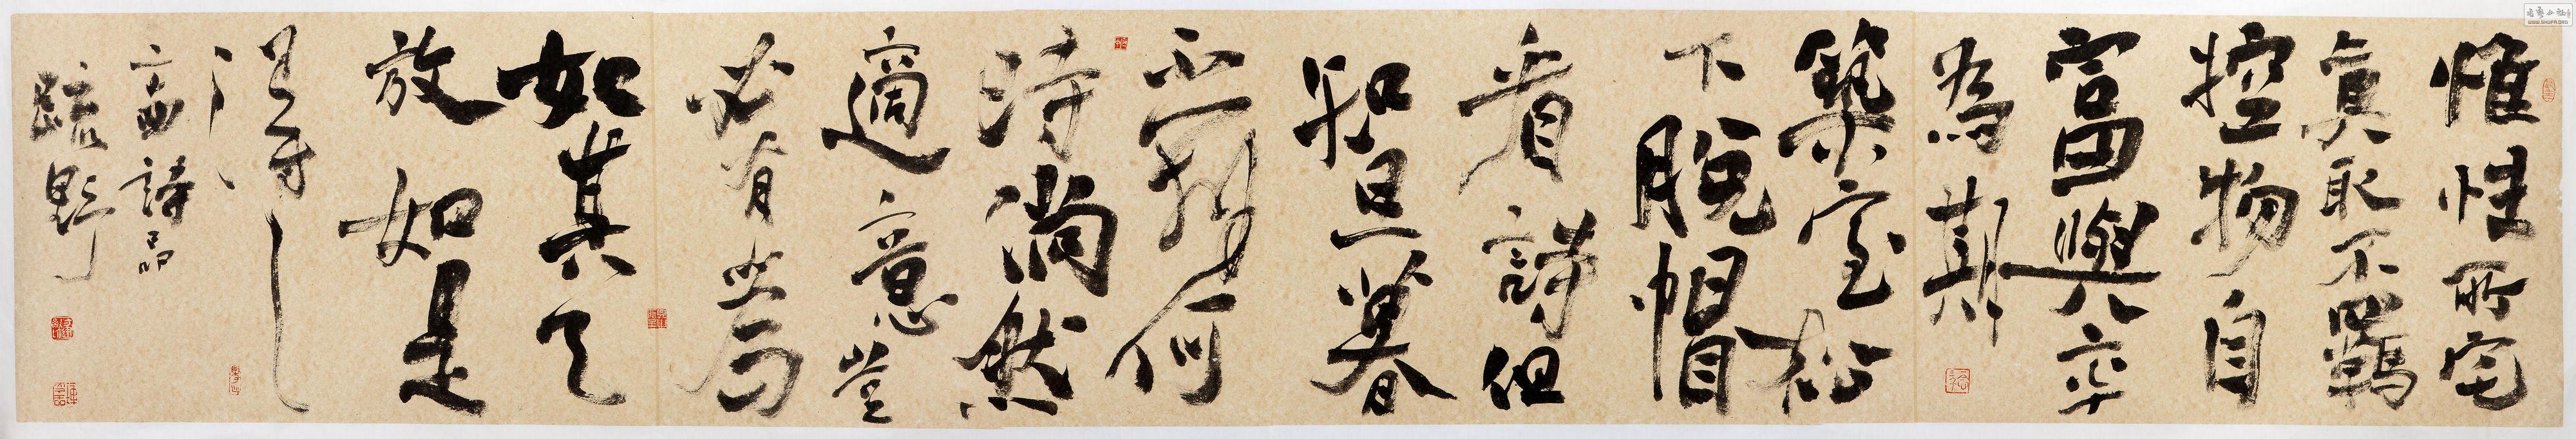 惟性所宅
真取不羈
控物自
富與率
為期
築室松
下脫帽
看詩但
知旦暮
不辨何
時倘然
適意豈
必有為
如其天
放如是
得之
二十四詩品
疏野
WWW.SHUFA.ORG